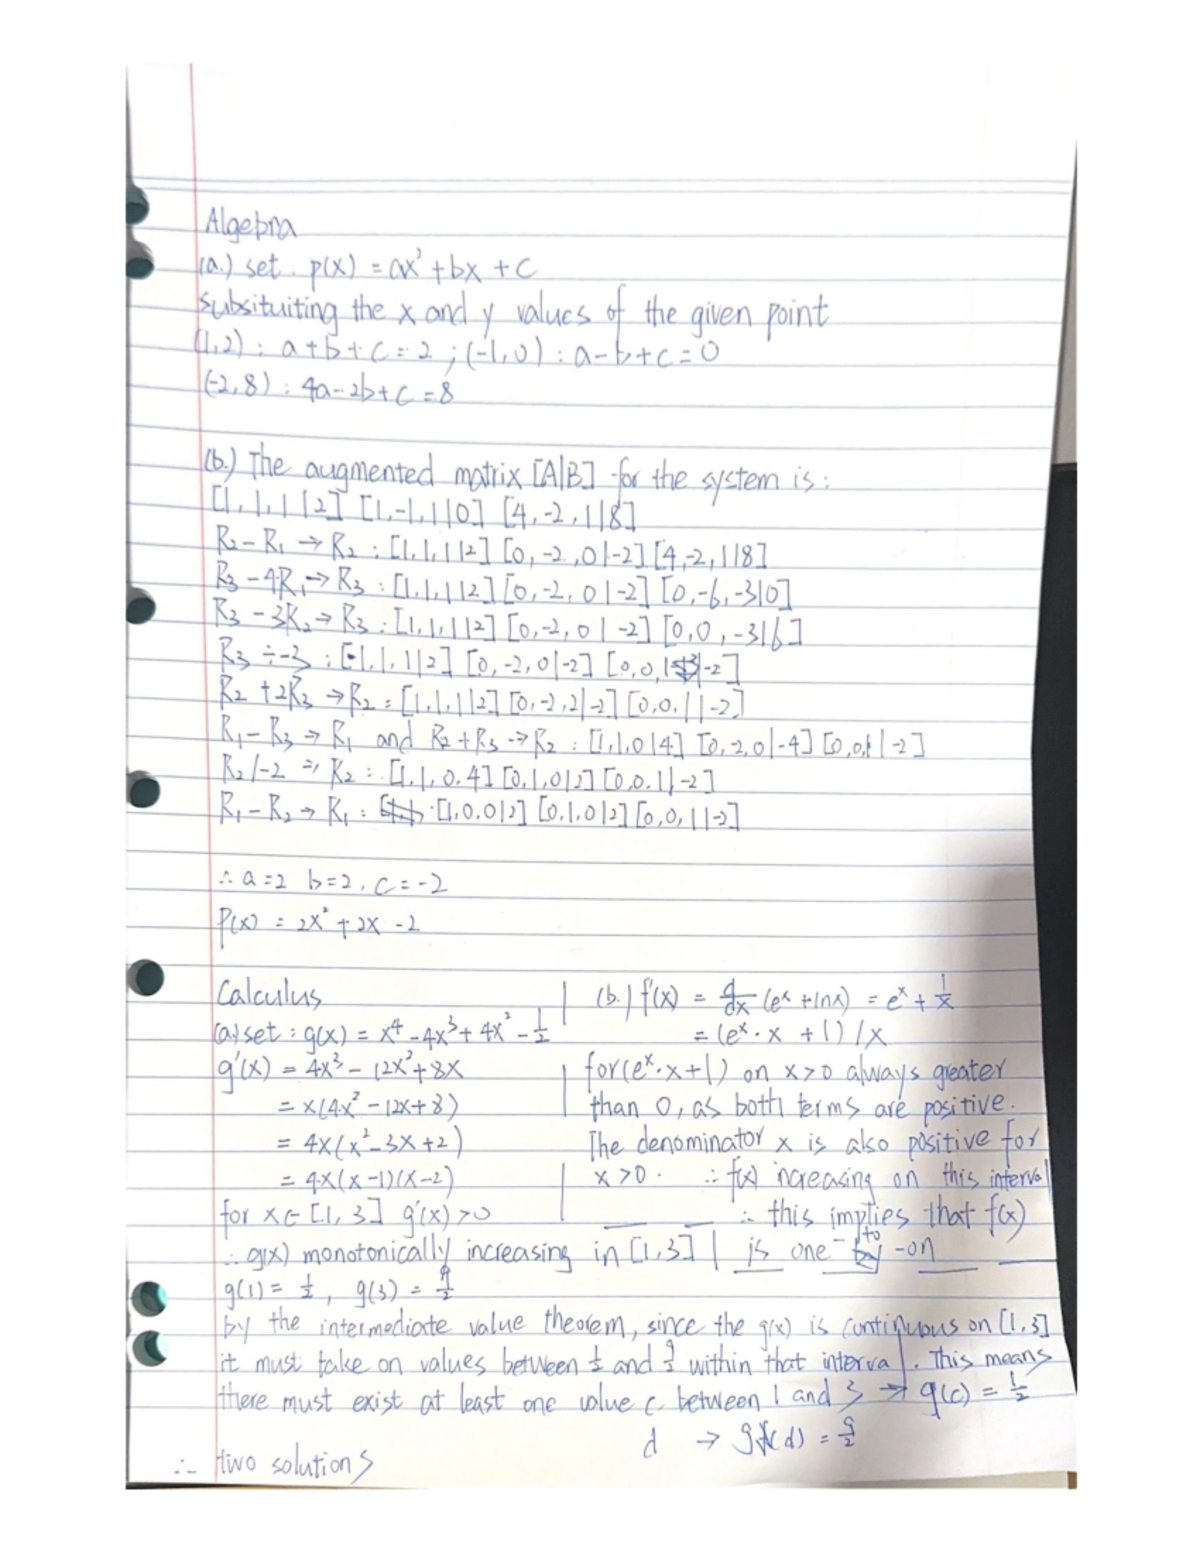 Algebra
(a.) set : p(x) = ax² + bx + c
Subsituiting the x and y values of the given point
(1,2) : a+b+c = 2 ; (-1,0) : a-b+c=0
(-2,8) : 4a-2b+c=8
(b.) The augmented matrix [A|B] for the system is :
[1,1,1|2] [1,-1,1|0] [4,-2,1|8]
R₂-R₁ → R₂ : [1,1,1|2] [0,-2,0|-2] [4,-2,1|8]
R₃-4R₁→ R₃ : [1,1,1|2] [0,-2,0|-2] [0,-6,-3|0]
R₃-3R₂→ R₃ : [1,1,1|2] [0,-2,0|-2] [0,0,-3|6]
R₃ ÷-3 : [1,1,1|2] [0,-2,0|-2] [0,0,1|-2]
R₂ +2R₃ →R₂ : [1,1,1|2] [0,-2,2|-2] [0,0,1|-2]
R₁-R₃ → R₁ and R₂+R₃ → R₂ : [1,1,0|4] [0,-2,0|-4] [0,0,1|-2]
R₂/-2 → R₂ : [1,1,0,4] [0,1,0|2] [0,0,1|-2]
R₁-R₂ → R₁ : [1,0,0|2] [0,1,0|2] [0,0,1|-2]
∴ a=2 b=2, c=-2
P(x) = 2x² + 2x -2
Calculus
(a.) set : g(x) = x⁴ -4x³+ 4x² -1/2
g'(x) = 4x³ - 12x²+8x
= x(4x² -12x+8)
= 4x(x²-3x+2)
= 4x(x-1)(x-2)
for x∈ [1, 3] g'(x) >0
∴ g(x) monotonically increasing in [1,3]
g(1) = 1/2, g(3) = 9/2
by the intermediate value theorem, since the g(x) is continuous on [1,3]
it must take on values between 1/2 and 9/2 within that interval. This means
there must exist at least one value c between 1 and 3 → g(c) = 1/2
d → g(d) = 9/2
∴ two solutions
(b.) f'(x) = d/dx (eˣ +lnx) = eˣ + 1/x
= (eˣ·x +1) / x
for (eˣ·x+1) on x>0 always greater
than 0, as both terms are positive.
The denominator x is also positive for
x >0. ∴ f(x) increasing on this interval
∴ this implies that f(x)
is one-to-on